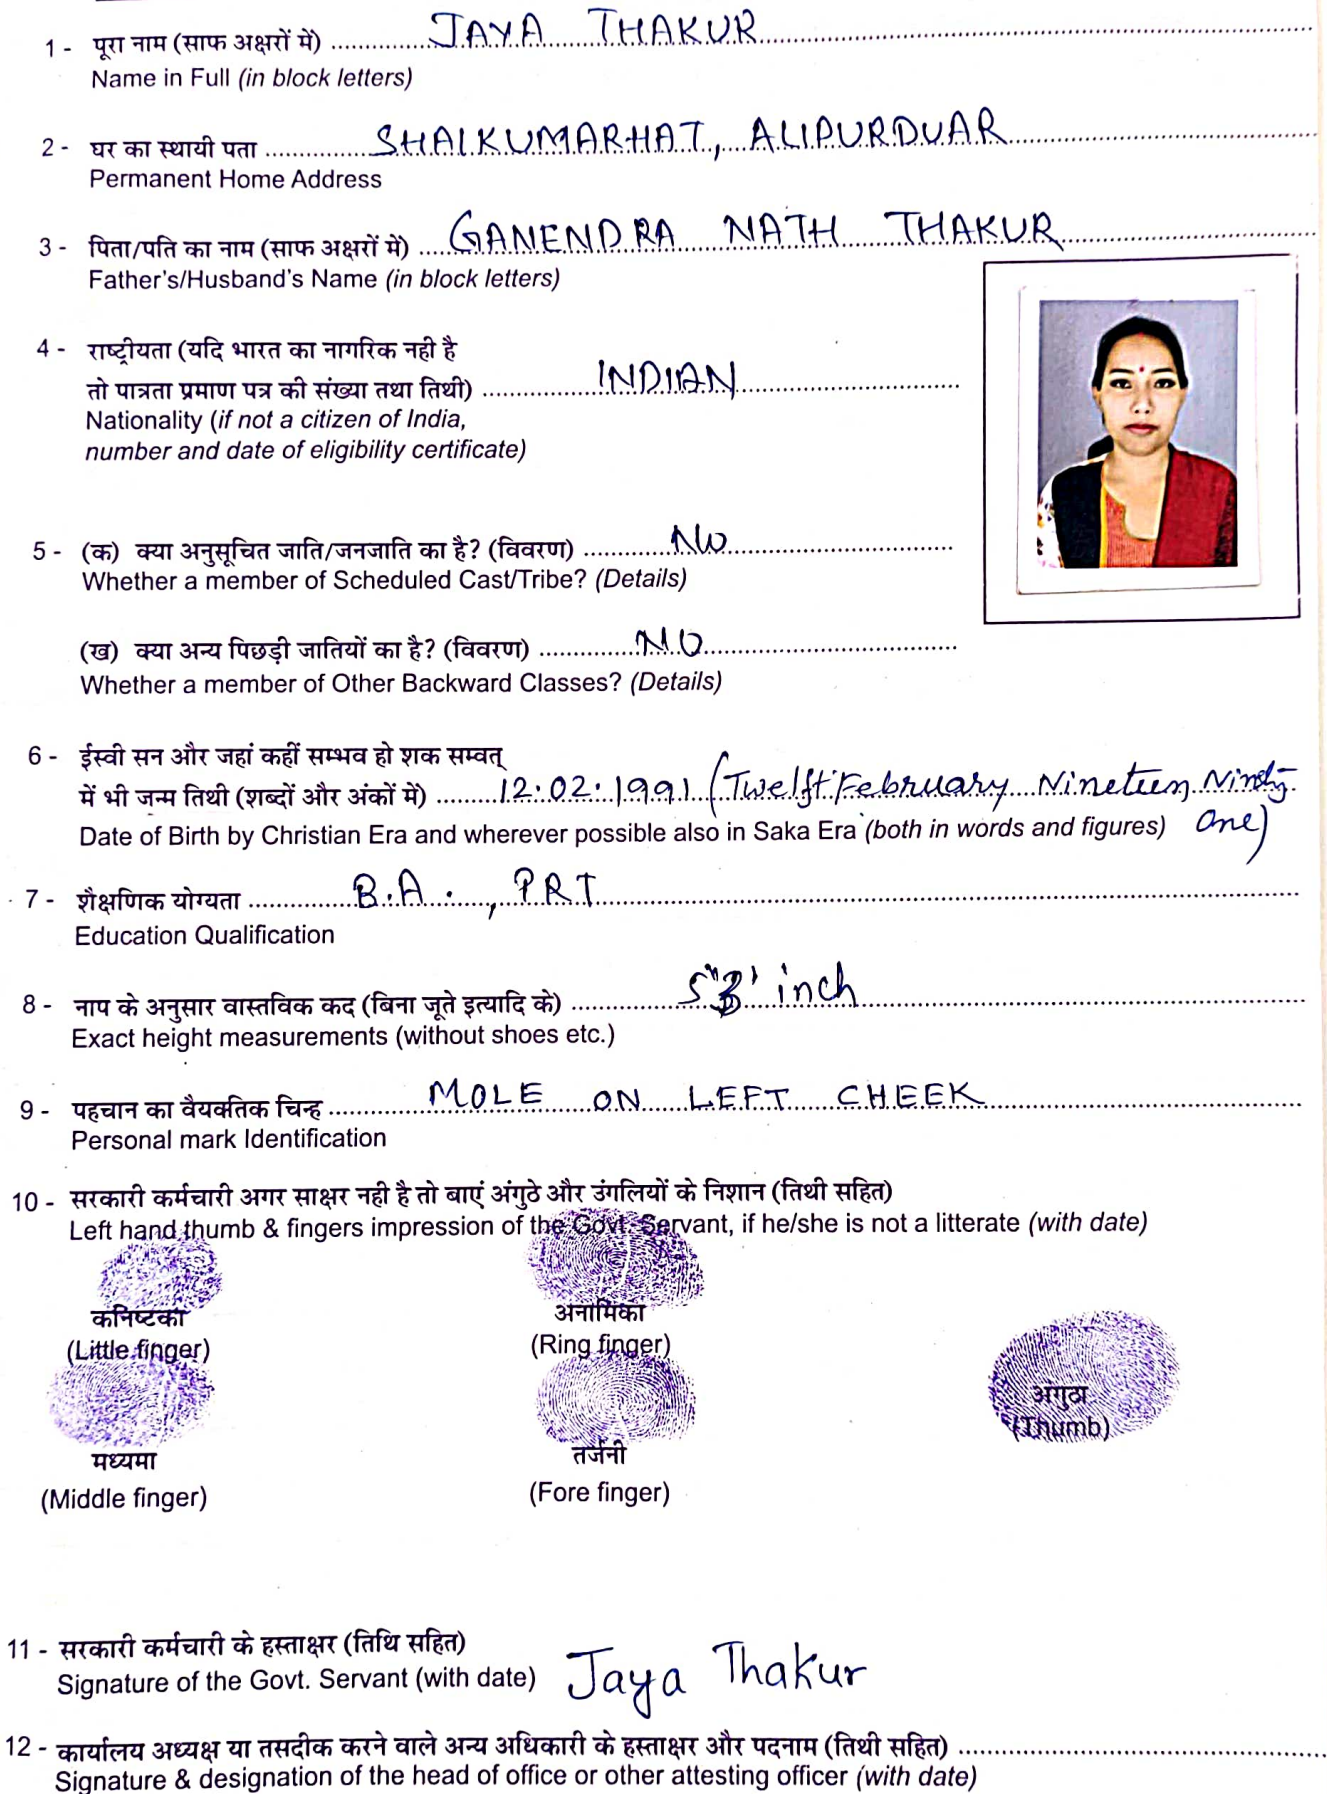 1 - पूरा नाम (साफ अक्षरों में) JAYA THAKUR
Name in Full (in block letters)
2 - घर का स्थायी पता SHALKUMARHAT, ALIPURDUAR
Permanent Home Address
3 - पिता/पति का नाम (साफ अक्षरों में) GANENDRA NATH THAKUR
Father's/Husband's Name (in block letters)
4 - राष्ट्रीयता (यदि भारत का नागरिक नही है
तो पात्रता प्रमाण पत्र की संख्या तथा तिथी) INDIAN
Nationality (if not a citizen of India,
number and date of eligibility certificate)
5 - (क) क्या अनुसूचित जाति/जनजाति का है? (विवरण) No
Whether a member of Scheduled Cast/Tribe? (Details)
(ख) क्या अन्य पिछड़ी जातियों का है? (विवरण) NO
Whether a member of Other Backward Classes? (Details)
6 - ईस्वी सन और जहां कहीं सम्भव हो शक सम्वत्
में भी जन्म तिथी (शब्दों और अंकों में) 12.02.1991 (Twelft February Nineteen Ninety
Date of Birth by Christian Era and wherever possible also in Saka Era (both in words and figures) One)
7 - शैक्षणिक योग्यता B.A., PRT
Education Qualification
8 - नाप के अनुसार वास्तविक कद (बिना जूते इत्यादि के) inch
Exact height measurements (without shoes etc.)
9 - पहचान का वैयक्तिक चिन्ह MOLE ON LEFT CHEEK
Personal mark Identification
10 - सरकारी कर्मचारी अगर साक्षर नही है तो बाएं अंगुठे और उंगलियों के निशान (तिथी सहित)
Left hand thumb & fingers impression of the Govt. Servant, if he/she is not a litterate (with date)
कनिष्टका अनामिका
(Little finger) (Ring finger)
अगुठा
(Thumb)
मध्यमा तर्जनी
(Middle finger) (Fore finger)
11 - सरकारी कर्मचारी के हस्ताक्षर (तिथि सहित)
Signature of the Govt. Servant (with date) Jaya Thakur
12 - कार्यालय अध्यक्ष या तसदीक करने वाले अन्य अधिकारी के हस्ताक्षर और पदनाम (तिथी सहित)
Signature & designation of the head of office or other attesting officer (with date)